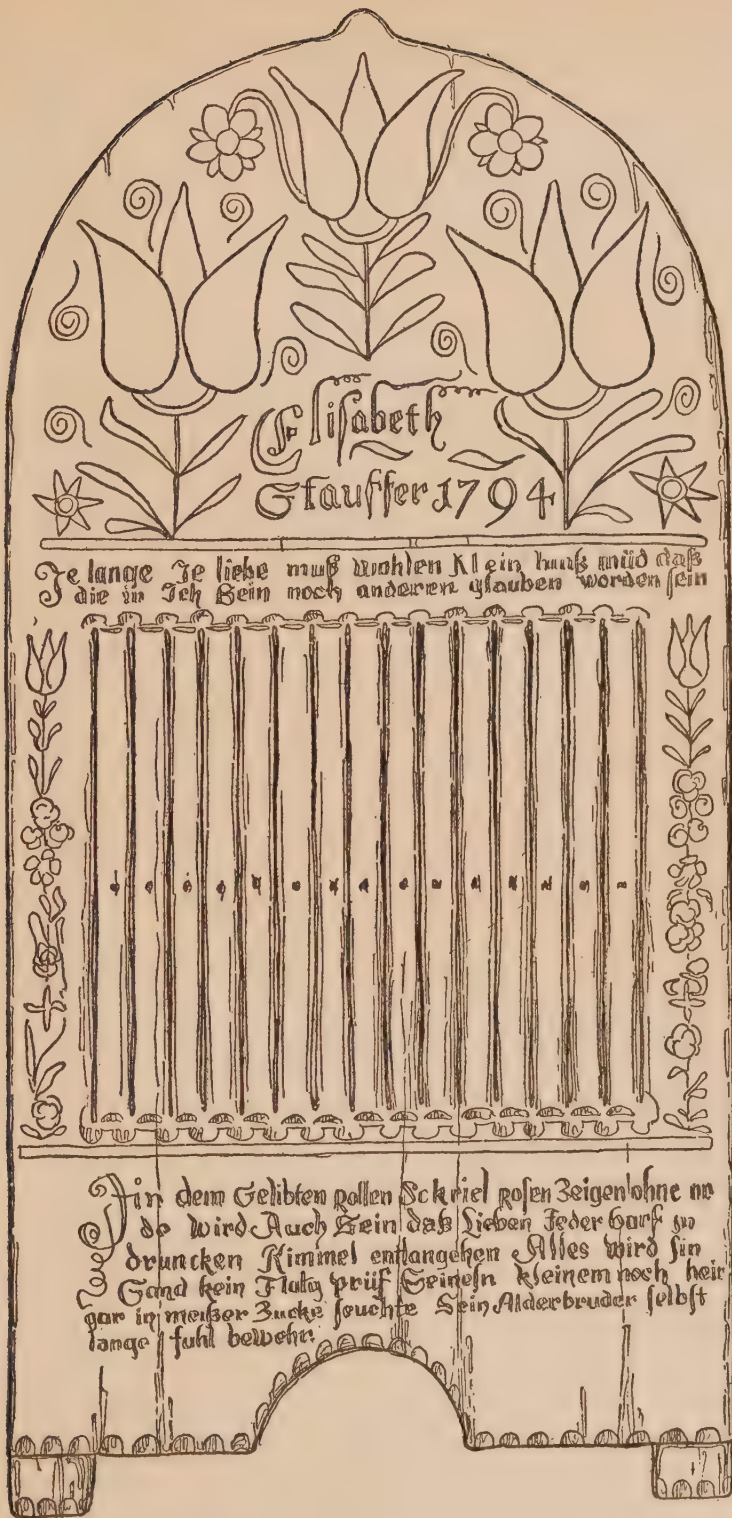 Elisabeth
Stauffer 1794
Je lange Je liebe muß wohlen Klein hauß müd daß
die in Ich Sein noch anderen glauben worden sein
In dem Gelibten rosen Zeigen ohne
de wird Auch Sein daß Lieben Jeder
druncken Kimmel entlangehen Alles wird sin
kein prüf Seinem kleinem noch heir
gar in meißer Zucke feuchte Sein Alderbruder selbst
lange fuhl bewehr